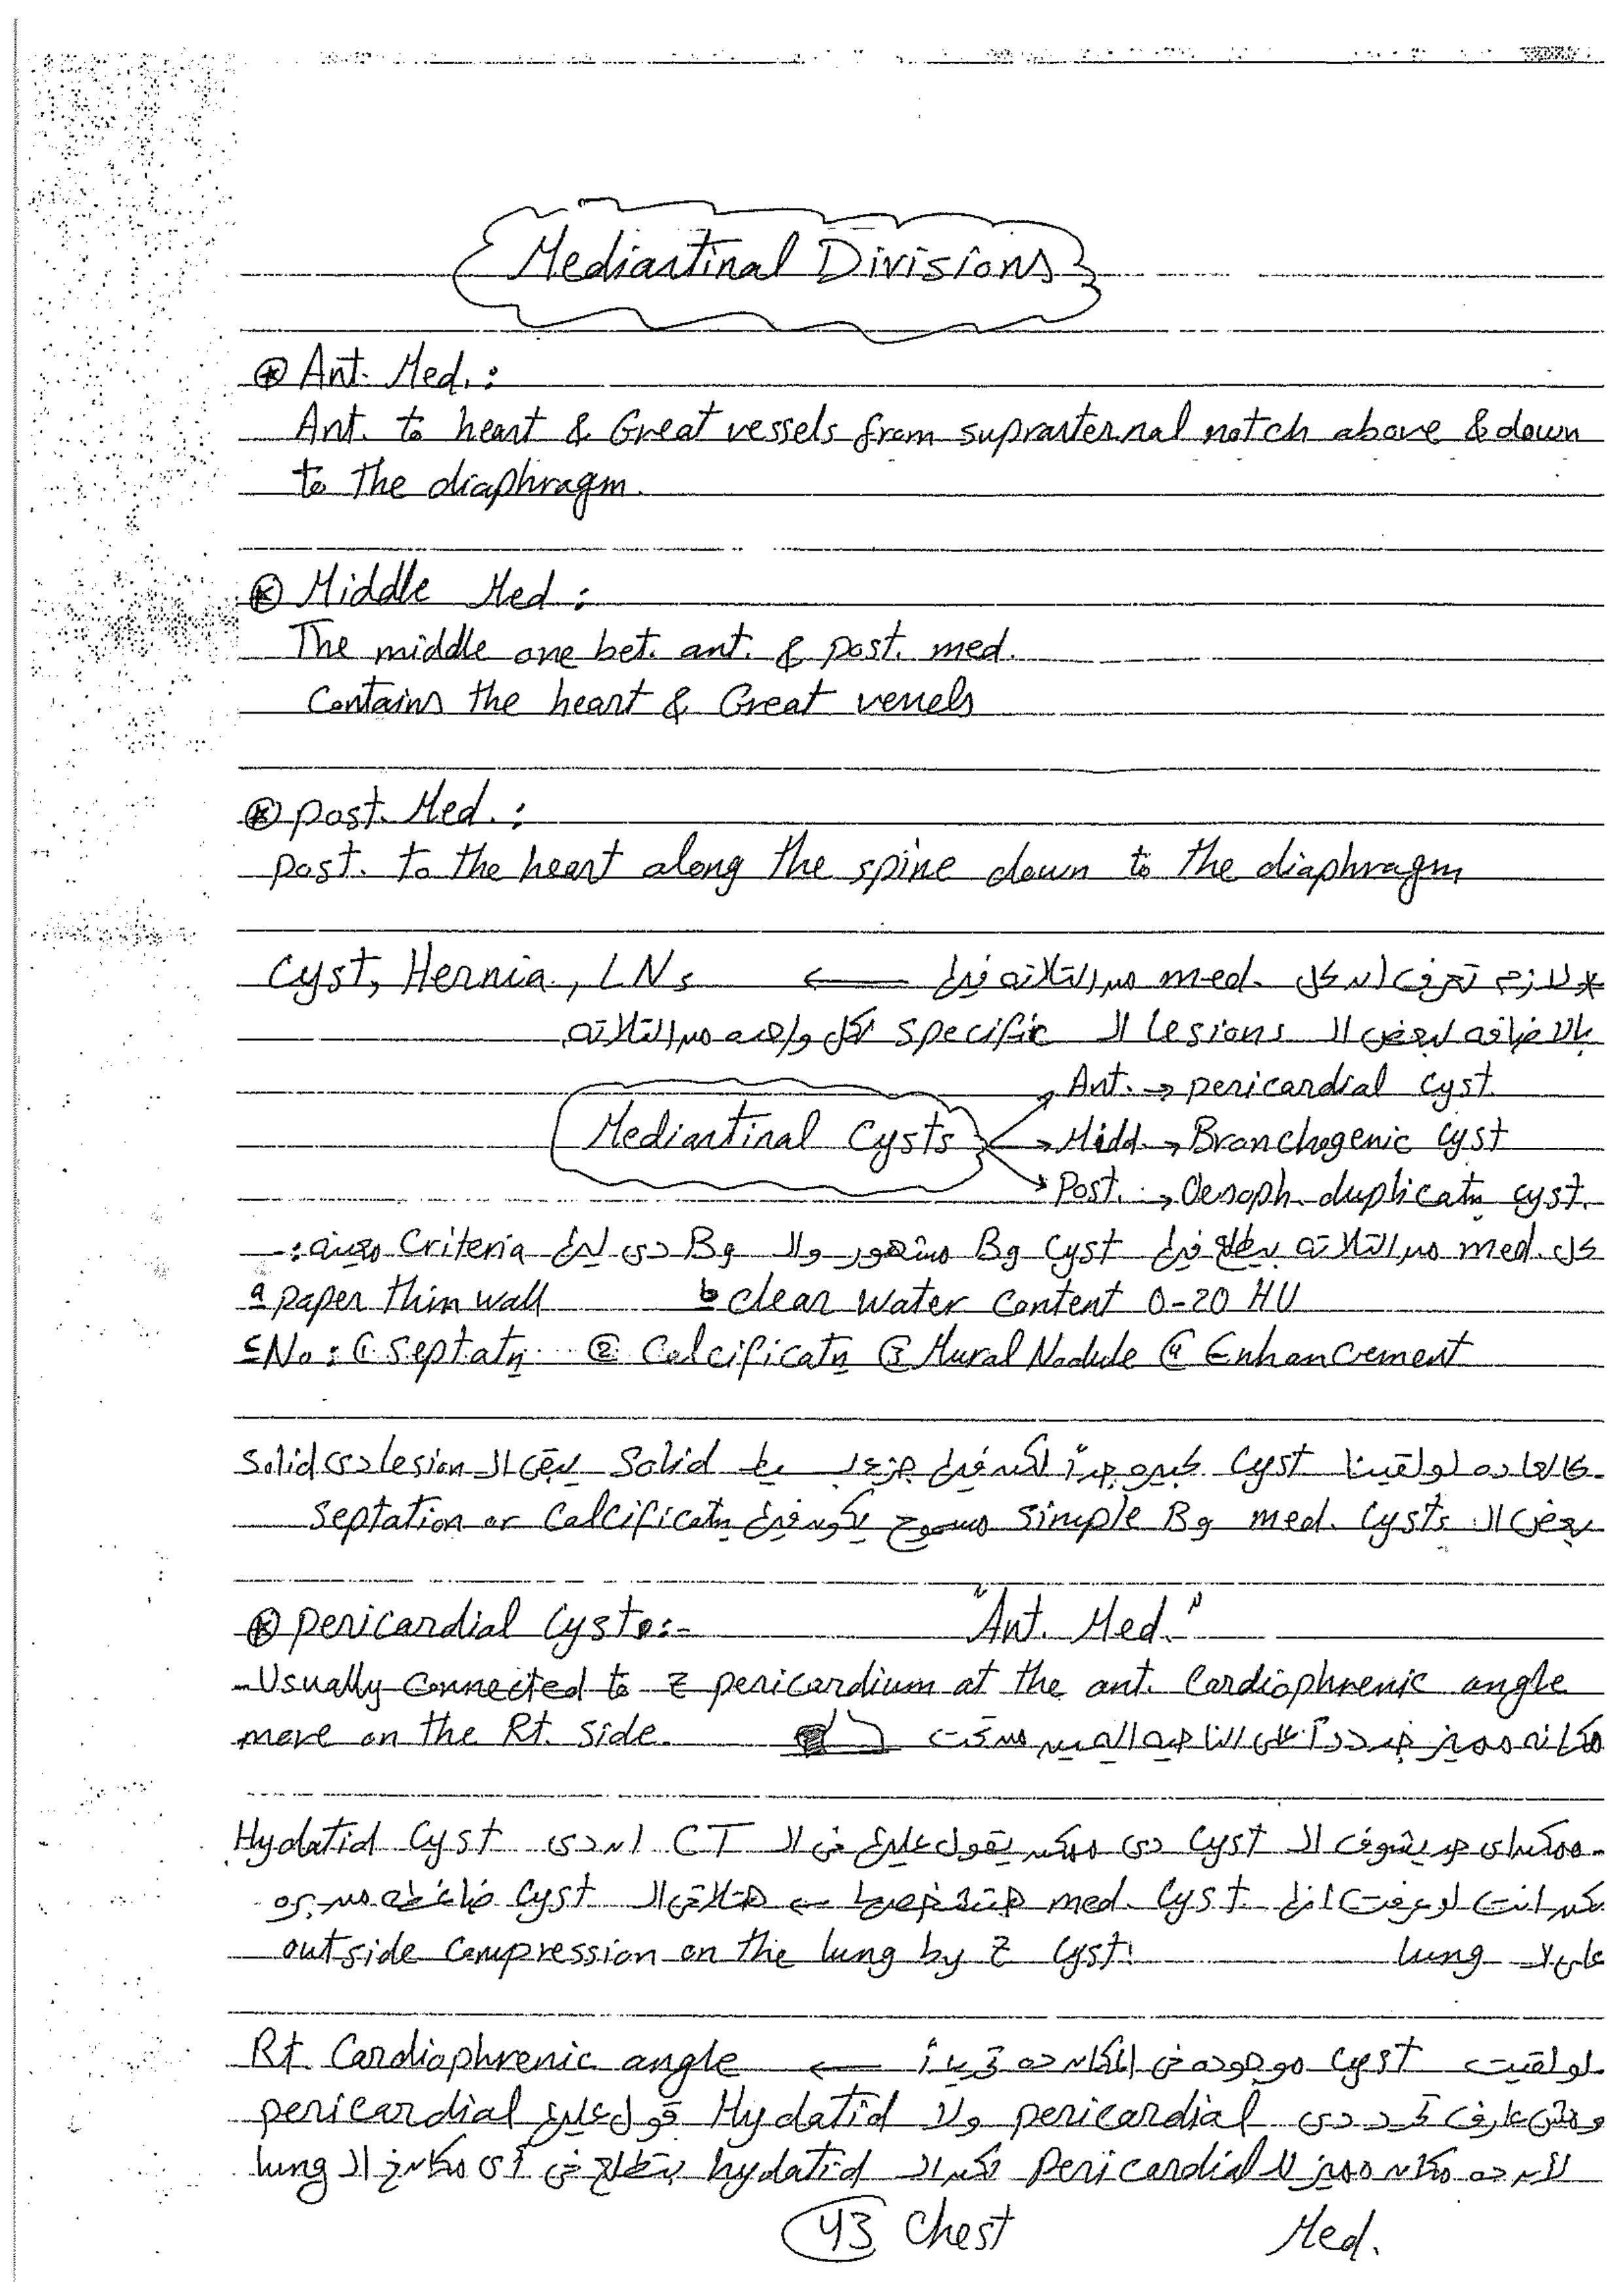 Mediastinal Divisions
⊛ Ant. Med. :
Ant. to heart & Great vessels from suprasternal notch above & down
to the diaphragm.
⊛ Middle Med :
The middle one bet. ant. & post. med.
Contains the heart & Great vessels
⊛ post. Med. :
post. to the heart along the spine down to the diaphragm
* لازم تعرف ان كل med. من التلاته فيها ← Cyst, Hernia, LNs
بالاضافه لبعض الـ specific lesions لكل واحده من التلاته
Mediastinal Cysts
Ant. → pericardial cyst.
Midd. → Bronchogenic cyst
Post. → Oesoph. duplicatn cyst.
كل med. من التلاته بيطلع فيها Bg cyst مشهور والـ Bg دى ليها Criteria معينه :-
a paper thin wall b clear water content 0-20 HU
c No : ① septatn ② Calcificatn ③ Mural Nodule ④ Enhancement
- كالعاده لو لقينا cyst كبيره جداً لكن فيها جزء solid يبقى الـ lesion دى solid
بعض الـ simple Bg med. cysts مسموح يكون فيها septation or Calcificatn
⊛ pericardial Cysts :- "Ant. Med."
- Usually connected to z pericardium at the ant. Cardiophrenic angle
more on the Rt. side. مكانه مميز جدداً على الناحيه اليمين من تحت
- ممكن اى حد يشوف الـ cyst دى ممكن يقول عليها فى الـ CT ان دى Hydatid Cyst
لكن انت لو عرفت انها med. cyst. هتشخصها ← هتلاقى الـ cyst ضاغطه من بره
على الـ lung outside compression on the lung by z cyst.
لو لقيت cyst موجوده فى المكان ده تقريباً ← Rt. Cardiophrenic angle
ومش عارف تحدد دى pericardial ولا Hydatid قول عليها pericardial
لأن ده مكان مميز للـ Pericardial لكن الـ hydatid بتطلع فى أى مكان فى الـ lung
43 Chest Med.